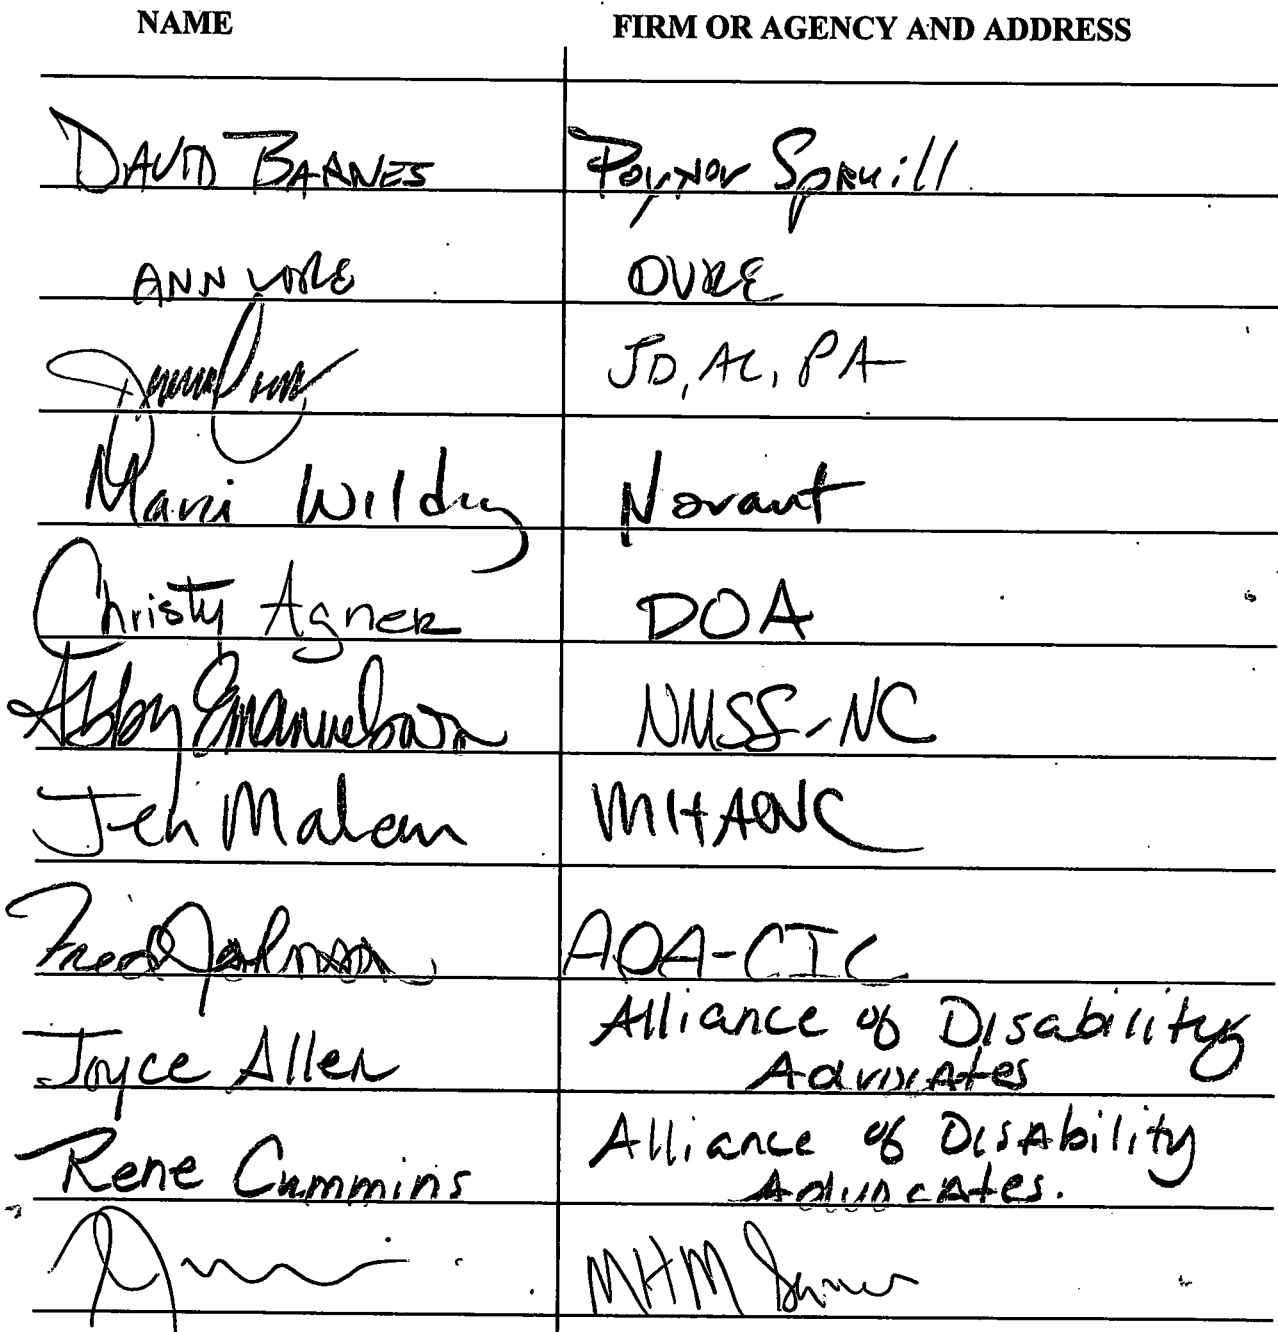 NAME FIRM OR AGENCY AND ADDRESS
DAVID BARNES Poyner Spruill
ANN DUKE
JD, AC, PA
Wildry Novant
Christy Agner DOA
Abby Emanuelson NMSS-NC
Jen Mahan MHA NC
Fred Johnson ADA-CIC
Joyce Allen Alliance of Disability
Advocates
Rene Cummins Alliance of Disability
Advocates.
MHM